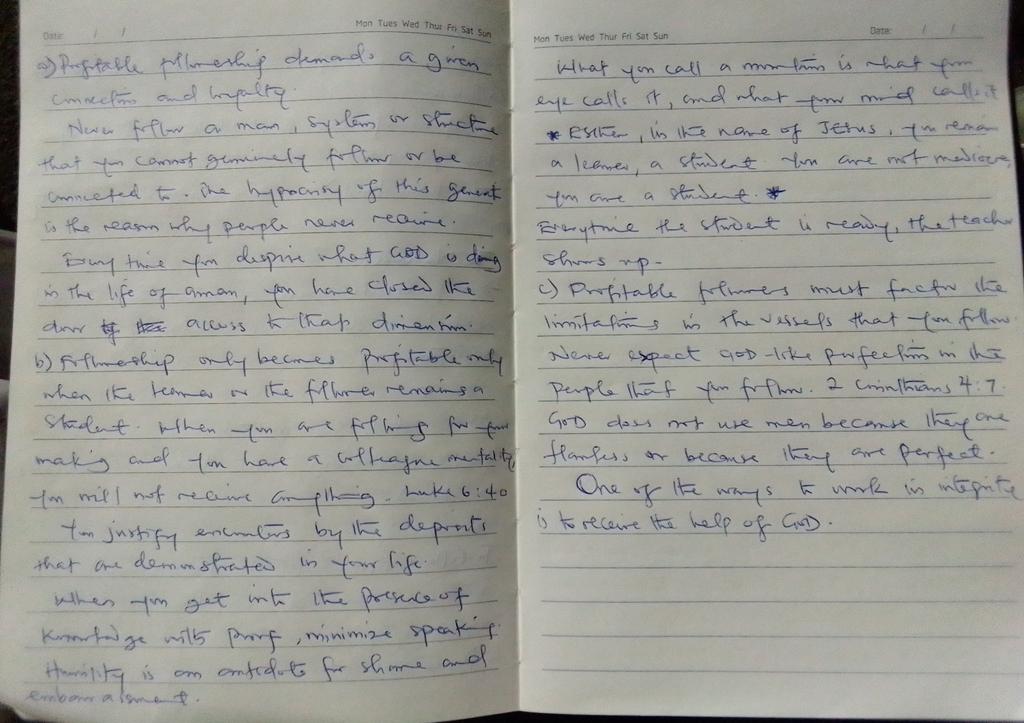 Date: / /
Mon Tues Wed Thur Fri Sat Sun
a) Profitable followership demands a given
connection and loyalty.
Never follow a man, system or structure
that you cannot genuinely follow or be
connected to. The hypocrisy of this generat
is the reason why people never receive.
Every time you despise what GOD is doing
in the life of a man, you have closed the
door access to that dimension.
b) Followership only becomes profitable only
when the learner or the follower remains a
student. When you are following for your
making and you have a colleague mentality,
you will not receive anything. Luke 6:40
You justify encounters by the deposits
that are demonstrated in your life.
When you get into the presence of
knowledge with proof, minimize speaking.
Humility is an antidote for shame and
embarrasment.
Mon Tues Wed Thur Fri Sat Sun
Date: / /
What you call a mountain is what your
eye calls it, and what your mind calls it
* Esther, in the name of JESUS, you remain
a learner, a student. You are not mediocre,
you are a student. *
Everytime the student is ready, the teacher
shows up.
c) Profitable followers must factor the
limitations in the vessels that you follow.
Never expect GOD-like perfection in the
people that you follow. 2 Corinthians 4:7.
GOD does not use men because they are
flawless or because they are perfect.
One of the ways to work in integrity
is to receive the help of GOD.